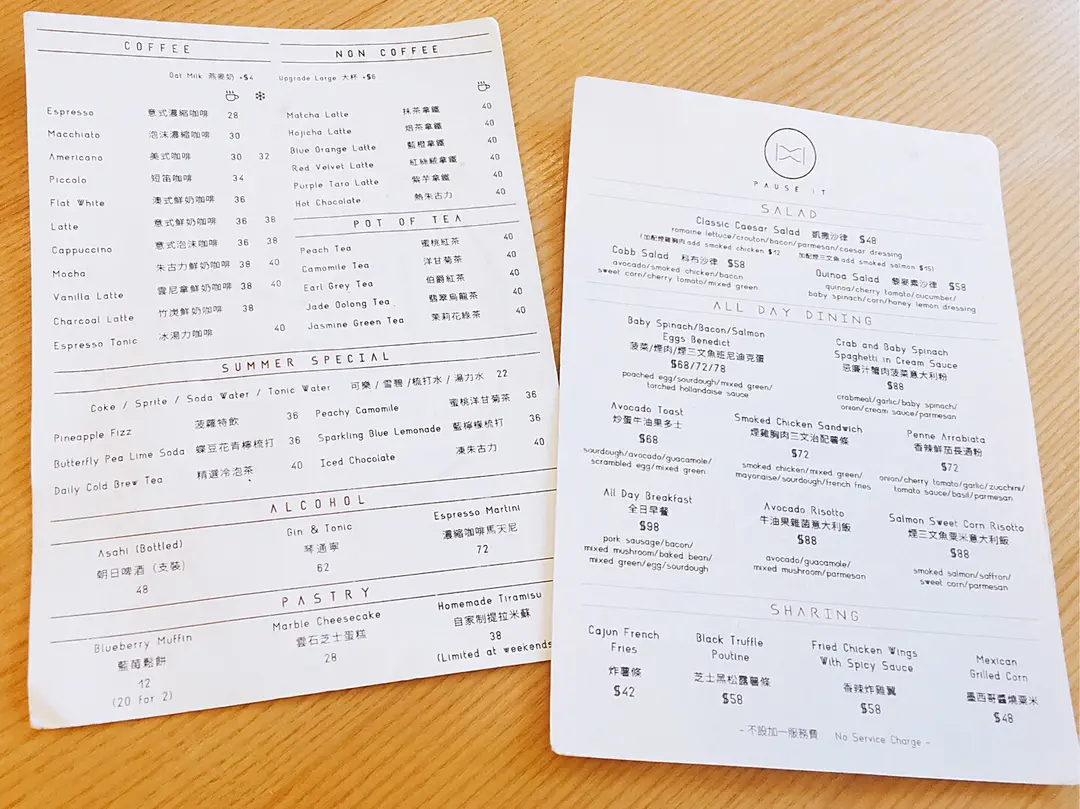 COFFEE
Oat Milk 燕麥奶 +$4
Espresso 意式濃縮咖啡 28
Macchiato 泡沫濃縮咖啡 30
Americano 美式咖啡 30 32
Piccolo 短笛咖啡 34
Flat White 澳式鮮奶咖啡 36
Latte 意式鮮奶咖啡 36 38
Cappuccino 意式泡沫咖啡 36 38
Mocha 朱古力鮮奶咖啡 38 40
Vanilla Latte 雲尼拿鮮奶咖啡 38 40
Charcoal Latte 竹炭鮮奶咖啡 38
Espresso Tonic 冰湯力咖啡 40
NON COFFEE
Upgrade Large 大杯 +$6
Matcha Latte 抹茶拿鐵 40
Hojicha Latte 焙茶拿鐵 40
Blue Orange Latte 藍橙拿鐵 40
Red Velvet Latte 紅絲絨拿鐵 40
Purple Taro Latte 紫芋拿鐵 40
Hot Chocolate 熱朱古力 40
POT OF TEA
Peach Tea 蜜桃紅茶 40
Camomile Tea 洋甘菊茶 40
Earl Grey Tea 伯爵紅茶 40
Jade Oolong Tea 翡翠烏龍茶 40
Jasmine Green Tea 茉莉花綠茶 40
SUMMER SPECIAL
Coke / Sprite / Soda Water / Tonic Water 可樂 / 雪碧 / 梳打水 / 湯力水 22
Pineapple Fizz 菠蘿特飲 36
Butterfly Pea Lime Soda 蝶豆花青檸梳打 36
Daily Cold Brew Tea 精選冷泡茶 40
Peachy Camomile 蜜桃洋甘菊茶 36
Sparkling Blue Lemonade 藍檸檬梳打 36
Iced Chocolate 凍朱古力 40
ALCOHOL
Asahi (Bottled)
朝日啤酒 (支裝)
48
Gin & Tonic
琴通寧
62
Espresso Martini
濃縮咖啡馬天尼
72
PASTRY
Blueberry Muffin
藍莓鬆餅
12
(20 for 2)
Marble Cheesecake
雲石芝士蛋糕
28
Homemade Tiramisu
自家制提拉米蘇
38
(Limited at weekends
PAUSE IT
SALAD
Classic Caesar Salad 凱撒沙律 $48
romaine lettuce/crouton/bacon/parmesan/caesar dressing
(加配煙雞胸肉 add smoked chicken $12 加配煙三文魚 add smoked salmon $15)
Cobb Salad 科布沙律 $58
avocado/smoked chicken/bacon
sweet corn/cherry tomato/mixed green
Quinoa Salad 藜麥素沙律 $58
quinoa/cherry tomato/cucumber/
baby spinach/corn/honey lemon dressing
ALL DAY DINING
Baby Spinach/Bacon/Salmon
Eggs Benedict
菠菜/煙肉/煙三文魚班尼迪克蛋
$68/72/78
poached egg/sourdough/mixed green/
torched hollandaise sauce
Crab and Baby Spinach
Spaghetti in Cream Sauce
忌廉汁蟹肉菠菜意大利粉
$88
crabmeat/garlic/baby spinach/
onion/cream sauce/parmesan
Avocado Toast
炒蛋牛油果多士
$68
sourdough/avocado/guacamole/
scrambled egg/mixed green
Smoked Chicken Sandwich
煙雞胸肉三文治配薯條
$72
smoked chicken/mixed green/
mayonaise/sourdough/french fries
Penne Arrabiata
香辣鮮茄長通粉
$72
onion/cherry tomato/garlic/zucchini/
tomato sauce/basil/parmesan
All Day Breakfast
全日早餐
$98
pork sausage/bacon/
mixed mushroom/baked bean/
mixed green/egg/sourdough
Avocado Risotto
牛油果雜菌意大利飯
$88
avocado/guacamole/
mixed mushroom/parmesan
Salmon Sweet Corn Risotto
煙三文魚粟米意大利飯
$88
smoked salmon/saffron/
sweet corn/parmesan
SHARING
Cajun French
Fries
炸薯條
$42
Black Truffle
Poutine
芝士黑松露薯條
$58
Fried Chicken Wings
With Spicy Sauce
香辣炸雞翼
$58
Mexican
Grilled Corn
墨西哥醬燒粟米
$48
- 不設加一服務費 No Service Charge -